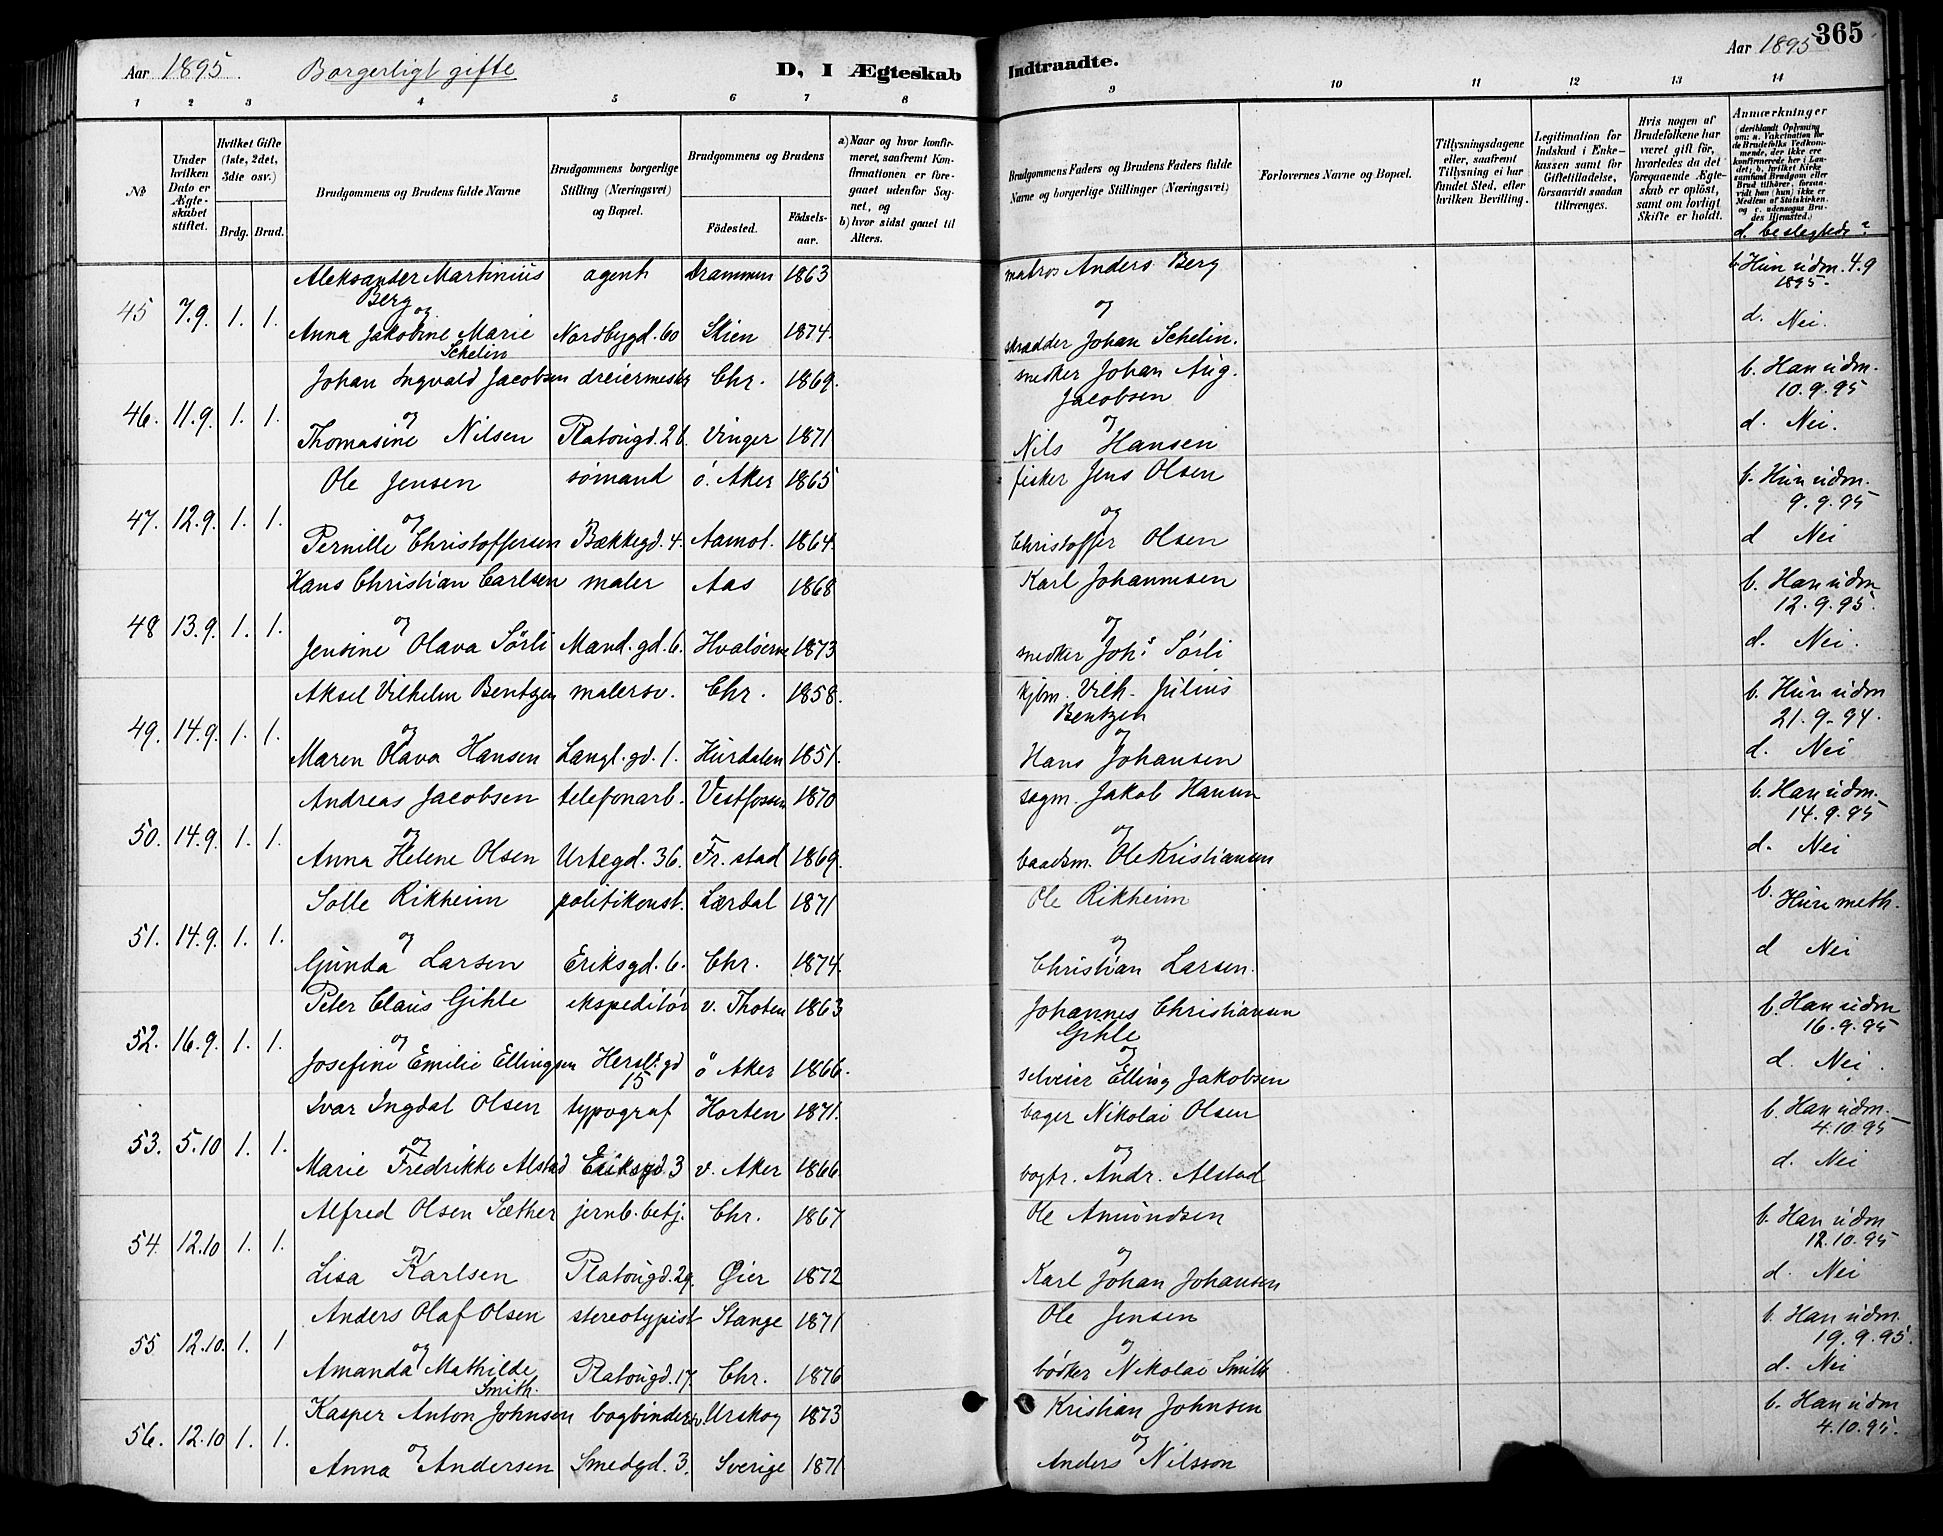 Aar 1895. Borgerligt gifte D, I Ægteskab
Indtraadte. Aar 1895 365
1 2 3 4 5 6 7 8
9 10 11 12 13 14
№
Under hvilken Dato er Ægteskabet stiftet.
Hvilket Gifte (1ste, 2det, 3die osv.)
Brdg. Brud.
Brudgommens og Brudens fulde Navne
Brudgommens borgerlige Stilling (Næringsvei) og Bopæl.
Brudgommens og Brudens
Fødested. Fødselsaar.
a) Naar og hvor konfirmeret, saafremt Konfirmationen er foregaaet udenfor Sognet, og
b) hvor sidst gaaet til Alters.
Brudgommens Faders og Brudens Faders fulde Navne og borgerlige Stillinger (Næringsvei)
Forlovernes Navne og Bopæl.
Tillysningsdagene eller, saafremt Tillysning ei har fundet Sted, efter hvilken Bevilling.
Legitimation for Indskud i Enkekassen samt for Giftetilladelse, forsaavidt saadan tiltrænges.
Hvis nogen af Brudefolkene har været gift før, hvorledes da det foregaaende Ægteskab er opløst, samt om lovligt Skifte er holdt.
Anmærkninger
(deriblandt Oplysning om: a. Vakcination for de Brudefolks Vedkommende, der ikke ere konfirmerede her i Landet; b. hvilket Kirkesamfund Brudgom eller Brud tilhører, forsaavidt han (hun) ikke er Medlem af Statskirken, og c. udensogns Brudes Hjemsted.)
d. beslegtede?
Aleksander Martinius Berg agent Drammen 1863 matros Anders Berg b. Hun udm. 4.9 1895.
45 7.9. 1. 1. og og d. Nei.
Anna Jakobine Marie Schelin Nordbygd. 60 Skien 1874. skrædder Johan Schelin.
Johan Ingvald Jacobsen dreiermester Chr. 1869. snedker Johan Aug. Jacobsen b. Han udm. 10.9.95
46. 11.9. 1. 1. og og d. Nei.
Thomasine Nilsen Platougd. 26. Vinger 1871 Nils Hansen
Ole Jensen sømand ö. Aker 1865 fisker Jens Olsen b. Hun udm. 9.9.95
47. 12.9. 1. 1. og og d Nei
Pernille Christoffersen Bækkegd. 4. Aamot. 1864. Christoffer Olsen
Hans Christian Carlsen maler Aas 1868 Karl Johannesen b. Han udm 12.9.95.
48 13.9. 1. 1. og og d. Nei.
Jensine Olava Sørli Mand.gd. 6. Hvalöerne 1873 snedker Johs Sørli
Aksel Vilhelm Bentzen malersv. Chr. 1858. kjbm. Vilh. Julius Bentzen b. Hun udm 21.9-94.
49. 14.9. 1. 1. og og d. Nei
Maren Olava Hansen Langl.gd. 1. Hurdalen 1851. Hans Johansen
Andreas Jacobsen telefonarb. Vestfossen 1870 sagm. Jakob Hansen b. Han udm. 14.9.95
50. 14.9. 1. 1. og og d. Nei
Anna Helene Olsen Urtegd. 36. Fr.stad 1869. baadsm. Ole Kristiansen
Solle Rikheim politikonst. Lærdal 1871 Ole Rikheim b. Hun meth.
51. 14.9. 1. 1. og og d Nei
Gunda Larsen Eriksgd. 6. Chr. 1874. Christian Larsen.
Peter Claus Gihle ekspeditör v. Thoten 1863 Johannes Christiansen Gihle b. Han udm 16.9.95
52. 16.9. 1. 1. og og d. Nei.
Josefine Emilie Ellingsen Herslb.gd 15 ö Aker 1866. selveier Elling Jakobsen
Ivar Ingdal Olsen typograf Horten 1871. bager Nikolai Olsen b. Han udm. 4.10.95
53. 5.10 1. 1. og og d. Nei
Marie Fredrikke Alstad Eriksgd. 3 v. Aker 1866 bogtr. Andr. Alstad
Alfred Olsen Sæther jernb.betj. Chr. 1867 Ole Amundsen b. Han udm 12.10.95
54. 12.10 1. 1. og og d. Nei
Lisa Karlsen Platougd. 29. Øier 1872 Karl Johan Johansen
Anders Olaf Olsen stereotypist Stange 1871 Ole Jensen b. Han udm. 19.9.95.
55 12.10. 1. 1 og og d. Nei
Amanda Mathilde Smith. Platougd. 17. Chr. 1876 bødker Nikolai Smith
Kasper Anton Johnsen bogbinder Urskog 1873 Kristian Johnsen b. Han udm 4.10.95.
56. 12.10 1. 1. og og
Anna Andersen Smedgd. 3. Sverige 1871 Anders Nilsson